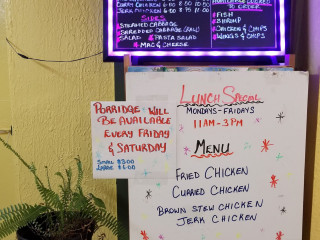 CURRY CHICKEN 6.50 8.50 10.50
JERK CHICKEN 6.50 8.75 11.00
SIDES
STEAMED CABBAGE
SHREDDED CABBAGE (RAW)
SALAD PASTA SALAD
MAC & CHEESE
AVAILABLE COOKED
TO ORDER
FISH
SHRIMP
CHICKEN & CHIPS
WINGS & CHIPS
PORRIDGE WILL
BE AVAILABLE
EVERY FRIDAY
& SATURDAY
SMALL $3.00
LARGE $6.00
LUNCH SPECIAL
MONDAYS-FRIDAYS
11AM-3PM
MENU
FRIED CHICKEN
CURRIED CHICKEN
BROWN STEW CHICKEN
JERK CHICKEN